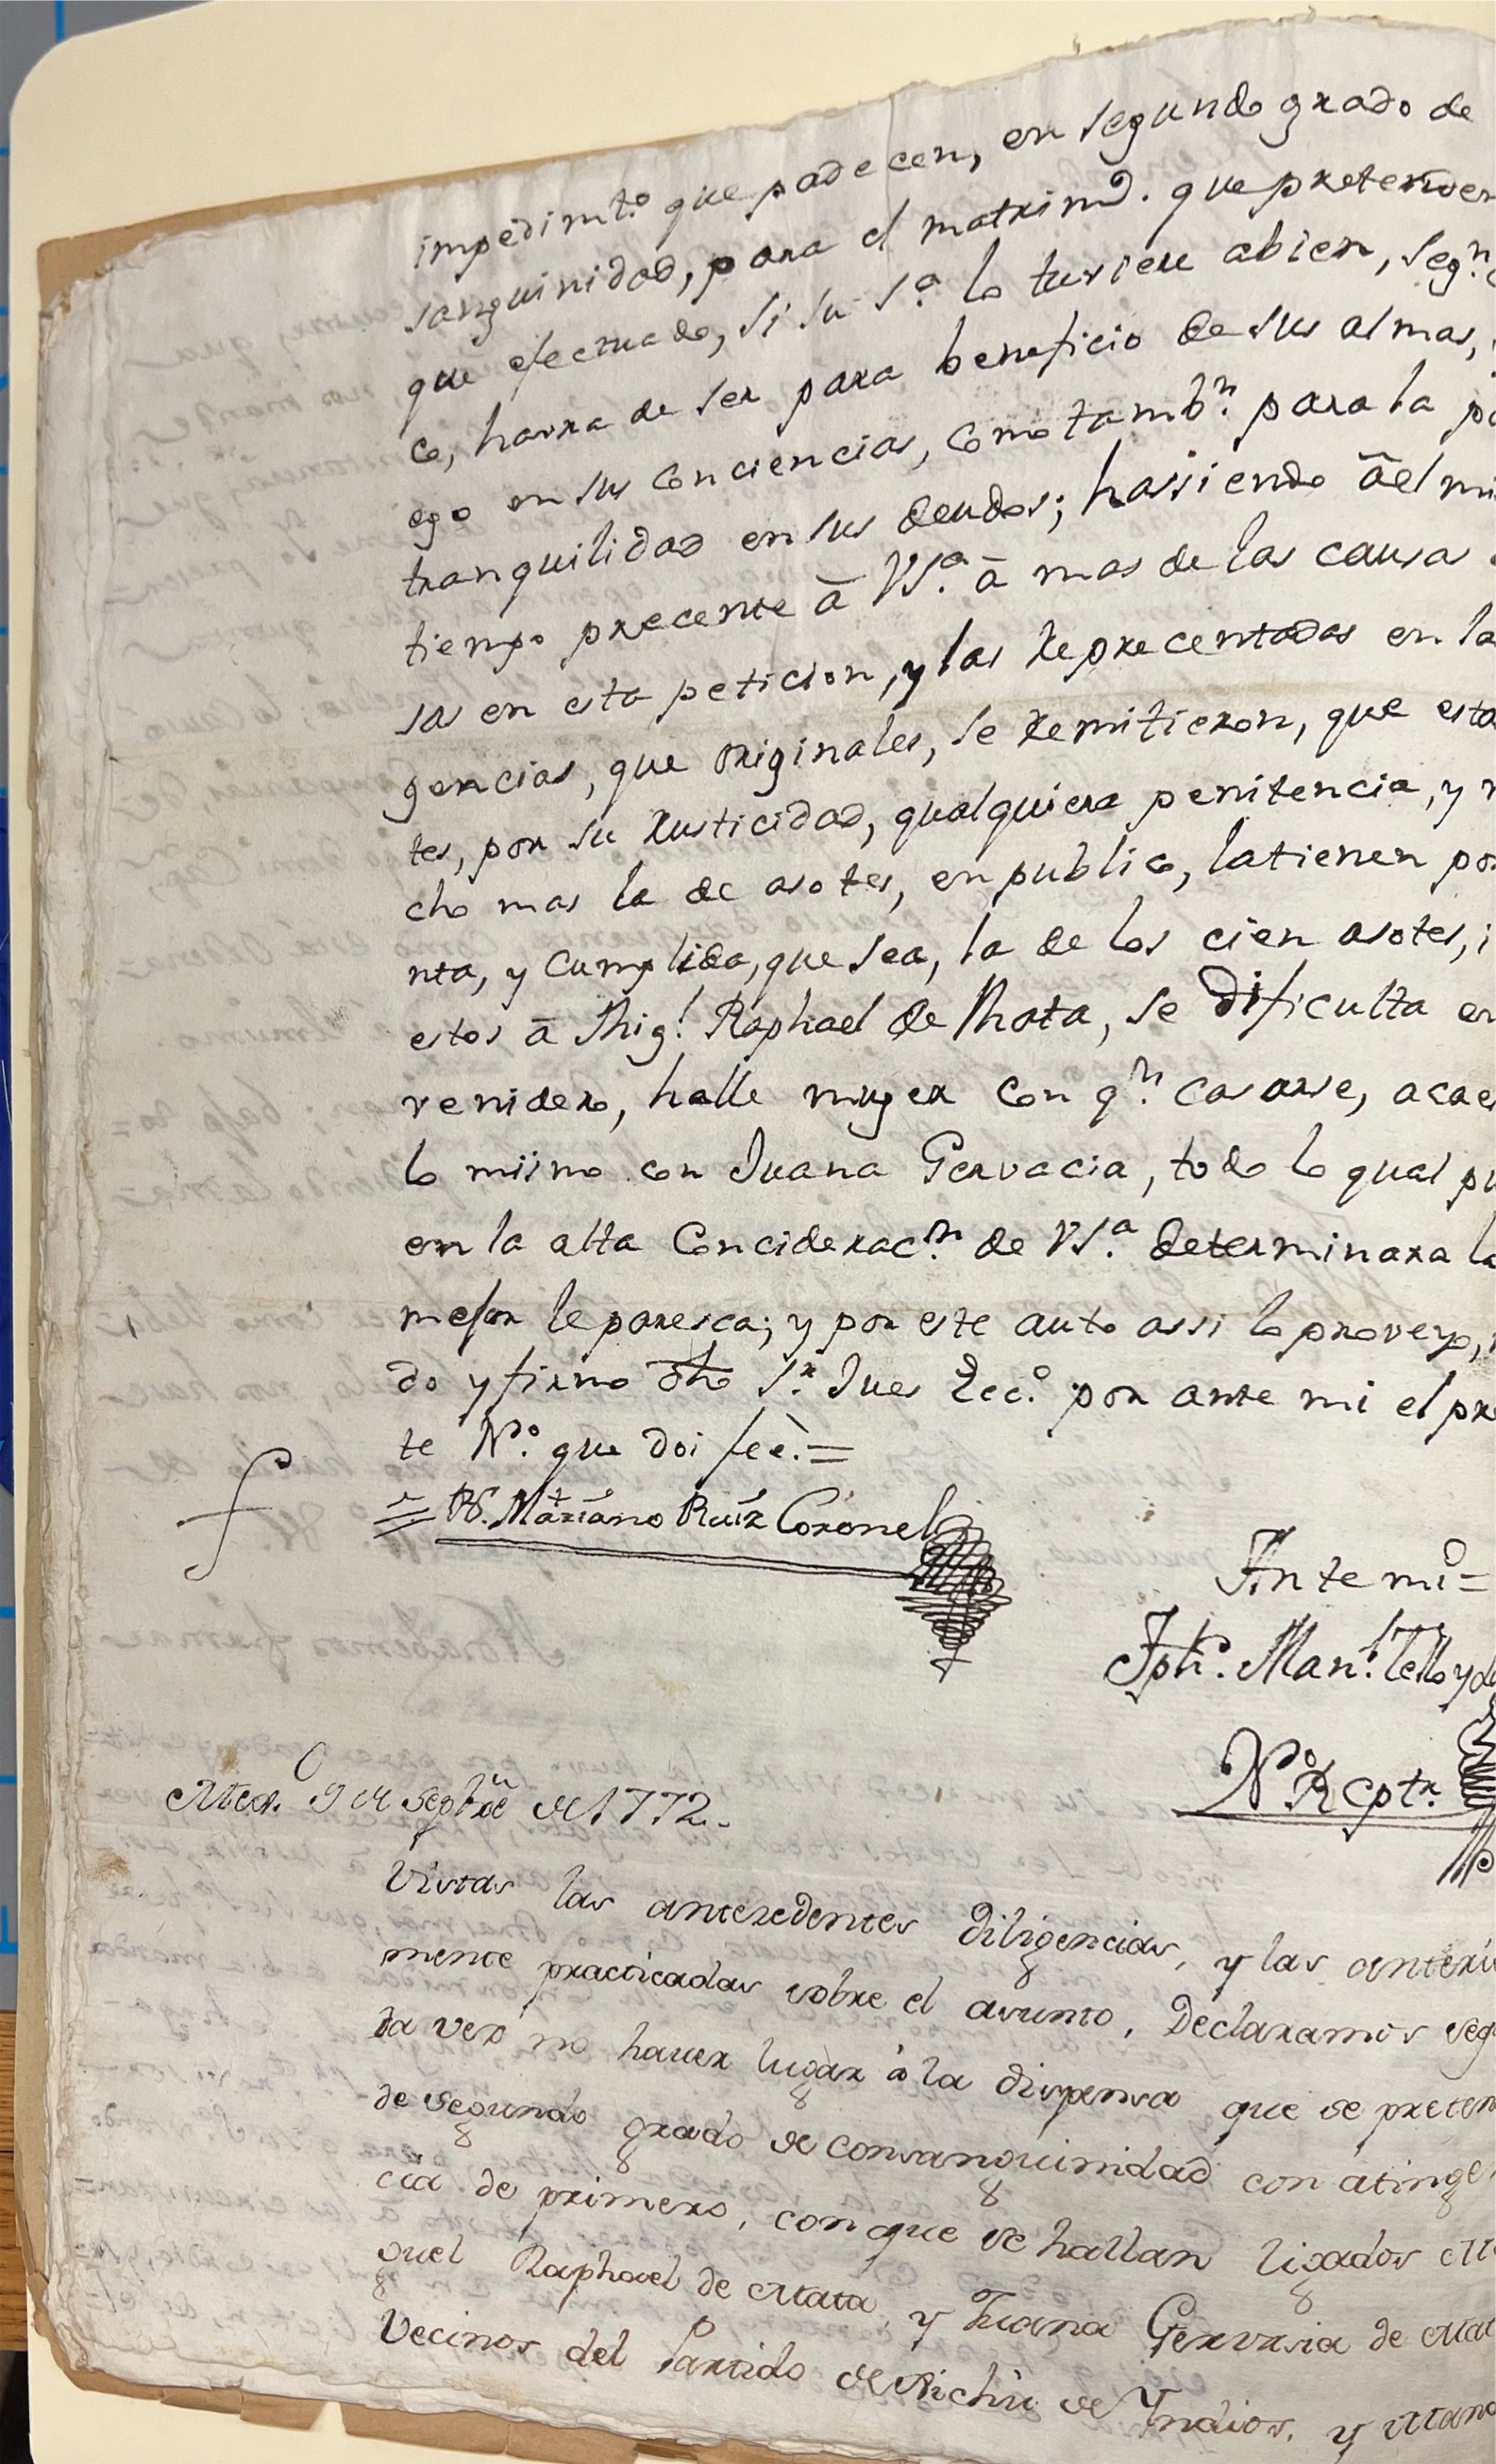 impedimto. que padecen, en segundo grado de
sanguinidad, para el matrimo. que pretenden
que efectuado, si su Sa. lo tuviere abien, segn.
co, havra de ser para beneficio de sus almas,
ego en sus conciencias, como tambn. para la
tranquilidad en sus deudos; hassiendo ã el
tiempo precente â VSa. â mas de las causa
sas en esta peticion, y las reprecentadas en la
gencias, que originales, se remitieron, que esta
tes, por su rusticidad, qualquiera penitencia, y
cho mas la de asotes, en publico, latienen por
nta, y cumplida, que sea, la de los cien asotes,
estos â Migl. Raphael de Mata, se dificulta en
venidero, halle muger con qn. casarse, acae
lo miismo con Juana Gervacia, todo lo qual pu
en la alta Concideracn. de VSa. determinara lo
mejor le paresca; y por este auto assi lo proveyo,
do y firmo dho Sr. Jues Ecco. por ante mi el pre
te No. que doi feè. =
= Br. Mariano Ruiz Coronel
Ante mi =
Jph. Manl. Tello y
No. Rcptr.
Mexo. 9 de Septre de 1772.
Vistas las antecedentes Diligencias, y las anteri
mente practicadas sobre el asunto, Declaramos seg
da vez no haver lugar à la dispensa que se preten
de segundo grado de consanguinidad con atinge
cia de primero, con que se hallan ligados Mi
guel Raphael de Mata, y Juana Gervasia de Mat
Vecinos del Partido de Vichú de Yndios, y